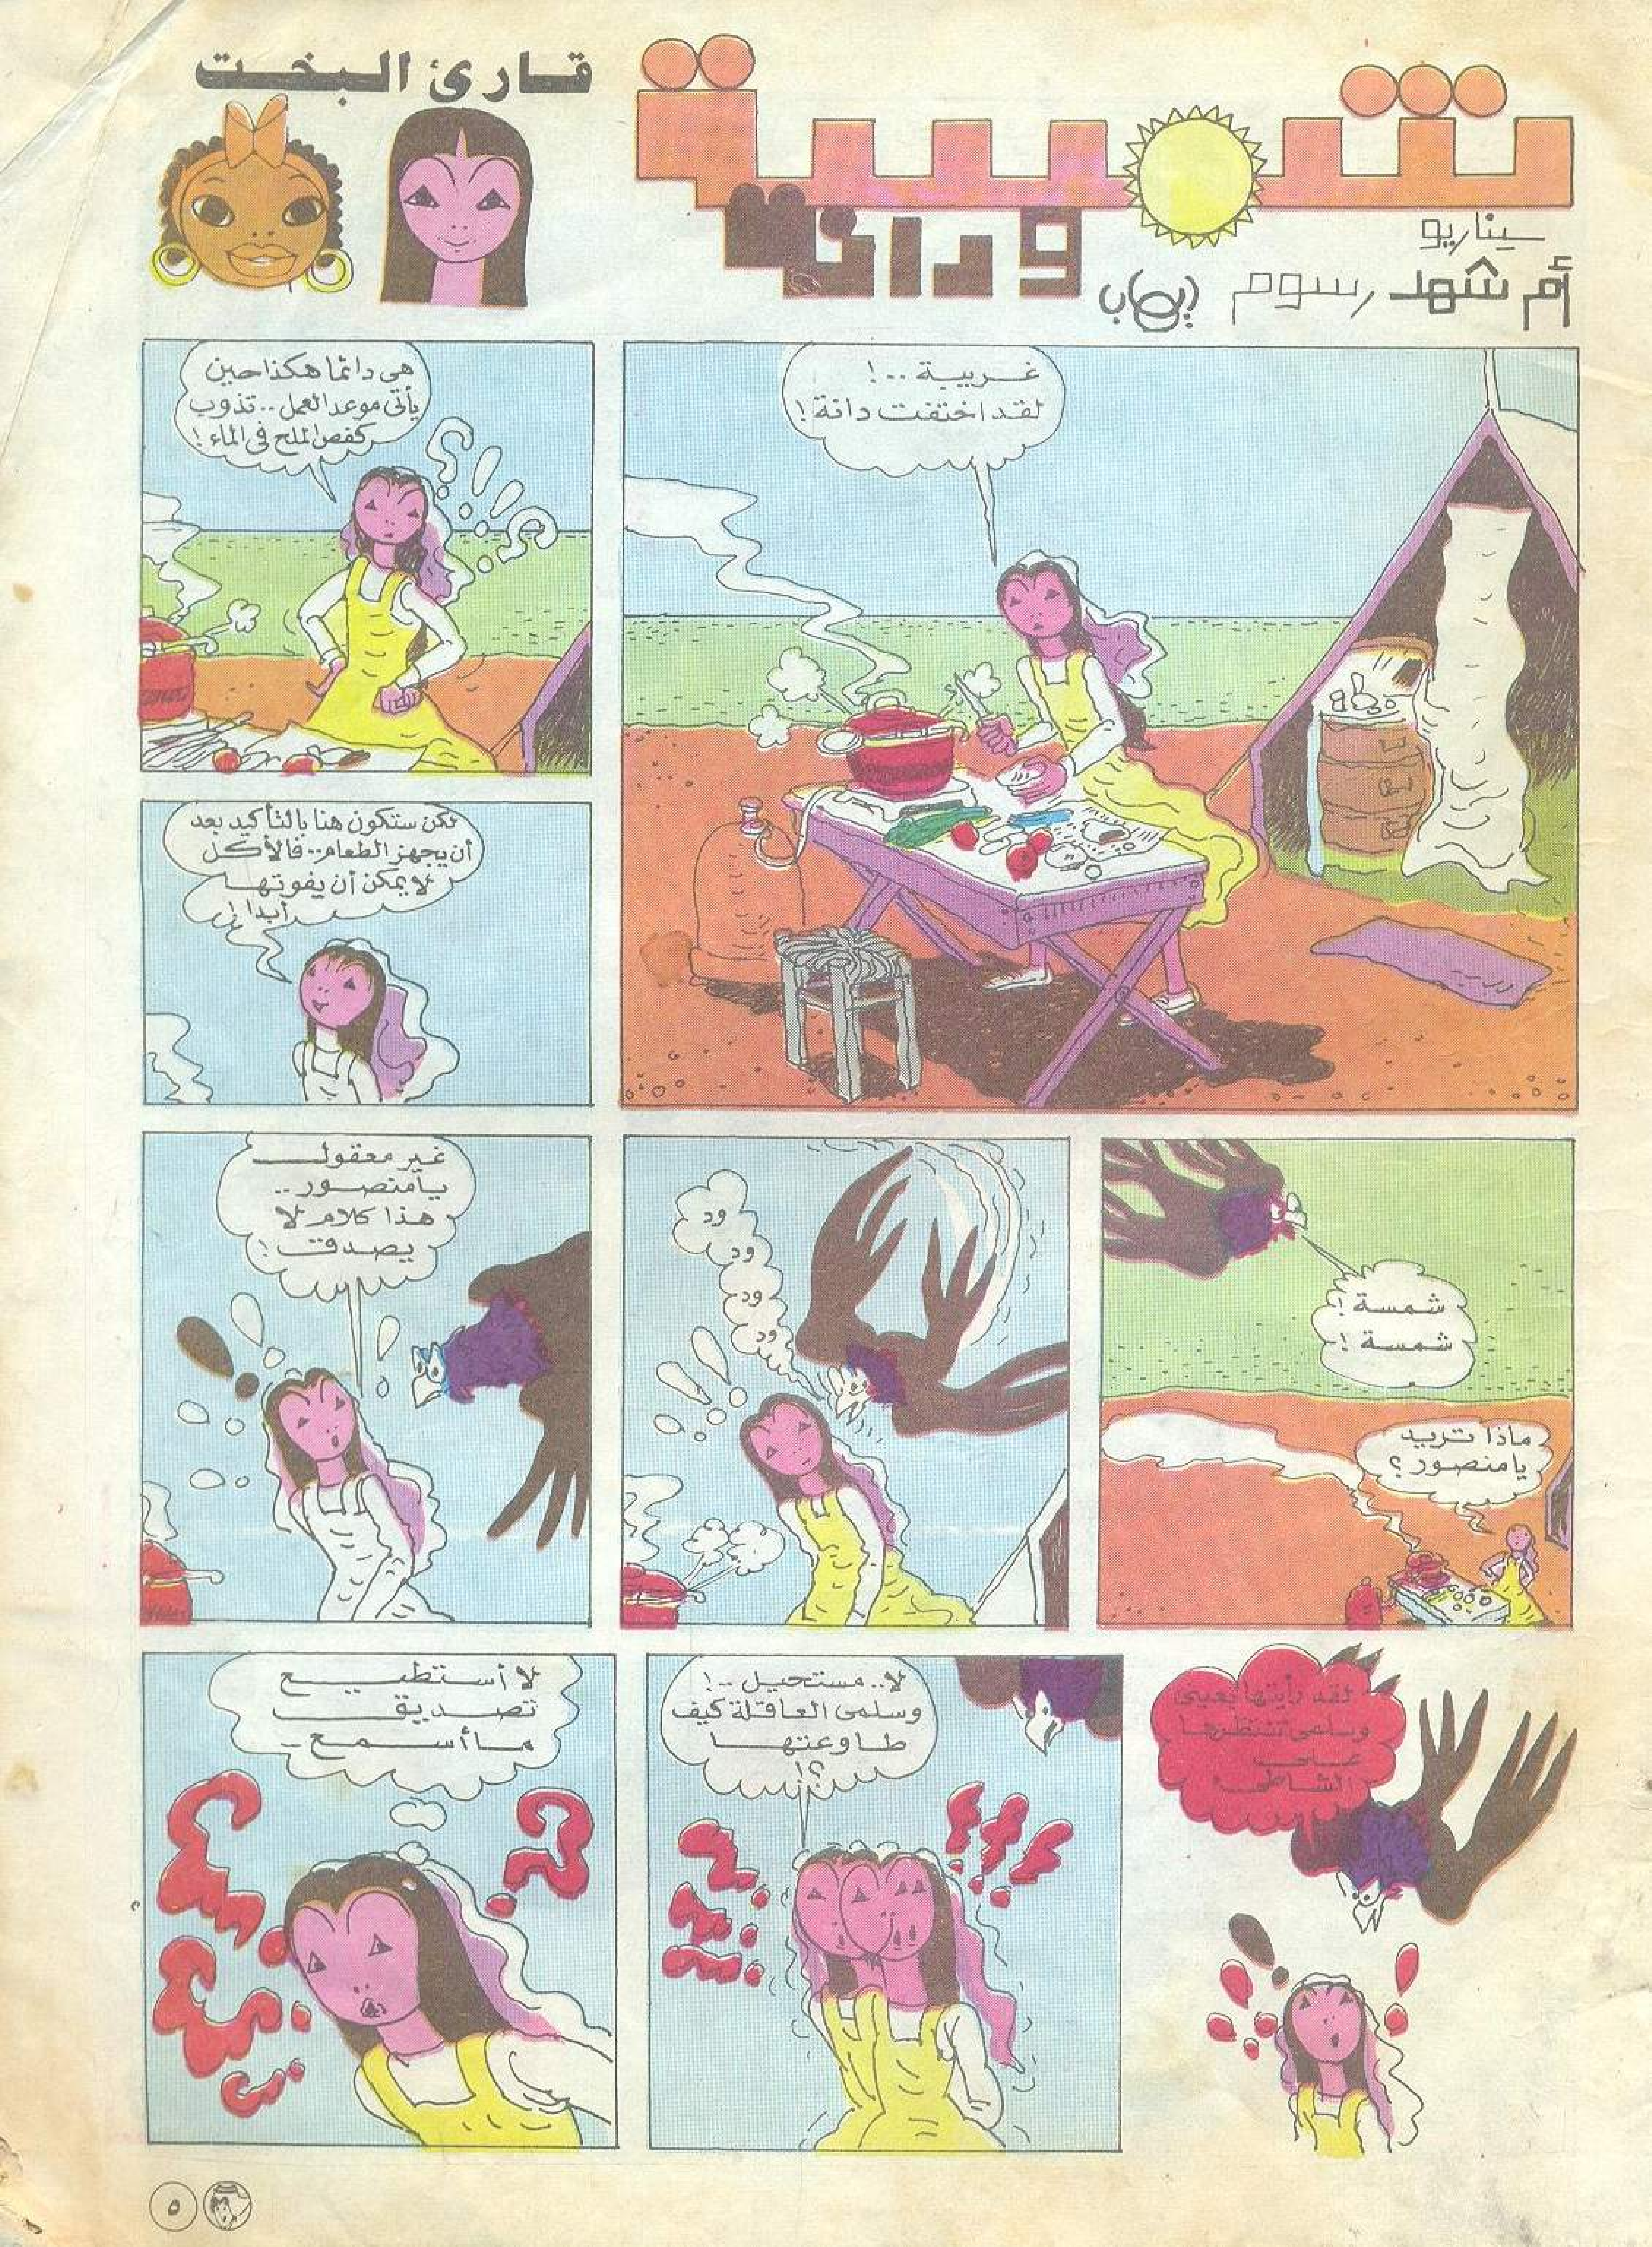 شمسة
ودانة
قارئ البخت
سيناريو
أم شهد رسوم إيهاب
غريبة ..!
لقد اختفت دانة !
هى دائما هكذا حين
يأتى موعد العمل .. تذوب
كفص الملح فى الماء !
لكن ستكون هنا بالتأكيد بعد
أن يجهز الطعام .. فالأكل
لا يمكن أن يفوتها
أبدا !
شمسة !
شمسة !
ماذا تريد
يا منصور ؟
ود
ود
ود
ود
غير معقول
يا منصور ..
هذا كلام لا
يصدق !
لقد رأيتها بعينى
وسلمى تنتظرها
على
الشاطىء
لا .. مستحيل ..!
وسلمى العاقلة كيف
طاوعتها
؟!
لا أستطيع
تصديق
ما أسمع ..
٥